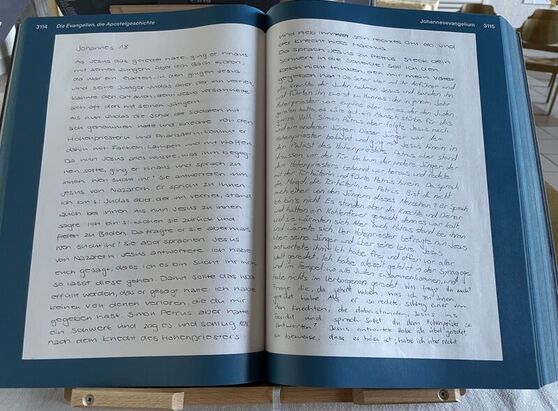 3114 Die Evangelien, die Apostelgeschichte
Johannes 18
Als Jesus das geredet hatte, ging er hinaus
mit seinen Jüngern über den Bach Kidron;
da war ein Garten, in den gingen Jesus
und seine Jünger. Judas aber, der ihn verriet,
kannte den Ort auch, denn Jesus versammelte
sich oft dort mit seinen Jüngern.
Als nun Judas die Schar der Soldaten mit
sich genommen hatte und Knechte von den
Hohenpriestern und Pharisäern, kommt er
dahin mit Fackeln, Lampen und mit Waffen.
Da nun Jesus alles wusste, was ihm begeg-
nen sollte, ging er hinaus und sprach zu
ihnen: Wen sucht ihr? Sie antworteten ihm:
Jesus von Nazareth. Er spricht zu ihnen:
Ich bin's! Judas aber, der ihn verriet, stand
auch bei ihnen. Als nun Jesus zu ihnen
sagte: Ich bin's!, wichen sie zurück und
fielen zu Boden. Da fragte er sie abermals:
Wen sucht ihr? Sie aber sprachen: Jesus
von Nazareth. Jesus antwortete: Ich habe
euch gesagt, dass ich es bin. Sucht ihr mich,
so lasst diese gehen. Damit sollte das Wort
erfüllt werden, das er gesagt hatte: Ich habe
keinen von denen verloren, die du mir
gegeben hast. Simon Petrus aber hatte
ein Schwert und zog es und schlug
nach dem Knecht des Hohenpriesters
Johannesevangelium 3115
und hieb ihm sein rechtes Ohr ab. Und
der Knecht hieß Malchus.
Da sprach Jesus zu Petrus: Steck dein
Schwert in die Scheide! Soll ich den
Kelch nicht trinken, den mir mein Vater
gegeben hat?
die Knechte der Juden nahmen Jesus und banden ihn
und führten ihn
Hohenpriester
ein Mensch stürbe für das
ganze Volk. Simon Petrus aber folgte Jesus nach
und ein anderer Jünger. Dieser Jünger war dem
Hohenpriester bekannt und ging mit Jesus hinein in
den Palast des Hohenpriesters. Petrus aber stand
draußen vor der Tür. Da kam der andere Jünger, der
dem Hohenpriester bekannt war, heraus und redete
mit der Türhüterin und führte Petrus hinein. Da sprach
die Magd, die Türhüterin, zu Petrus: Bist du nicht
auch einer von den Jüngern dieses Menschen? Er sprach:
Ich bin's nicht. Es standen aber die Knechte und Diener
und hatten ein Kohlenfeuer gemacht, denn es war kalt,
und sie wärmten sich. Aber auch Petrus stand bei ihnen
und wärmte sich. Der Hohepriester befragte nun Jesus
über seine Jünger und über seine Lehre. Jesus
antwortete ihm: Ich habe frei und offen vor aller
Welt geredet. Ich habe allezeit gelehrt in der Synagoge
und im Tempel, wo alle Juden zusammenkommen, und
habe nichts im Verborgenen geredet. Was fragst du mich?
Frage die, die gehört haben, was ich zu ihnen
geredet habe. Als er so redete, schlug einer von
den Knechten, die dabeistanden, Jesus ins
Gesicht und sprach: Sollst du dem Hohenpriester so
antworten? Jesus antwortete: Habe ich übel geredet,
so beweise, dass es böse ist; habe ich aber recht